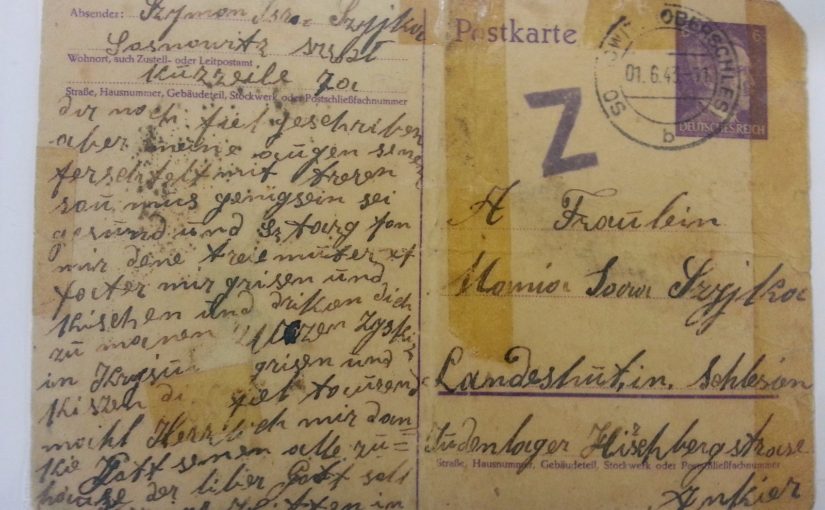 Absender: Szymon Isr. Szyjka
Sosnowitz
Wohnort, auch Zustell- oder Leitpostamt
Kuzzeile 7a
Straße, Hausnummer, Gebäudeteil, Stockwerk oder Postschließfachnummer
dir noch fiel geschriben
aber meine augen senen
ferschtelt mit treren
sou mus genigsein sei
gesund und sztarg fon
mir dene treie muter
foter mir grisen und
kischen und driken dich
zu manen herzen Zyski
in Krysiu grisen und
kiszen di fiel tousend
mach Herzlich mir dan
ke Gott senen alle zu=
hause der liber Gott soll
Postkarte
SOSNOWITZ OBERSCHLES
01.6.43-11
b
6
DEUTSCHES REICH
Z
A Fräulein
Mania Sara Szyjka
Landeshut, in. Schlesien
Judenlager Hirschbergstrase
Straße, Hausnummer, Gebäudeteil, Stockwerk oder Postschließfachnummer